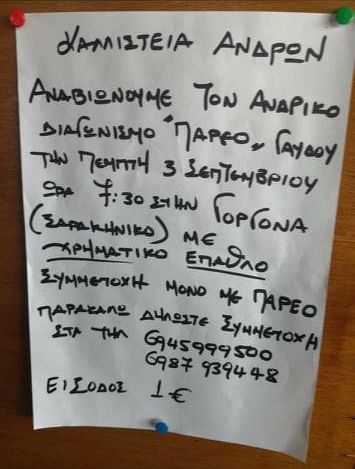 ΚΑΛΛΙΣΤΕΙΑ ΑΝΔΡΩΝ
ΑΝΑΒΙΩΝΟΥΜΕ ΤΟΝ ΑΝΔΡΙΚΟ
ΔΙΑΓΩΝΙΣΜΟ "ΠΑΡΕΟ" ΓΑΥΔΟΥ
ΤΗΝ ΠΕΜΠΤΗ 3 ΣΕΠΤΕΜΒΡΙΟΥ
ΩΡΑ 7:30 ΣΤΗΝ ΓΟΡΓΟΝΑ
(ΣΑΡΑΚΗΝΙΚΟ) ΜΕ
ΧΡΗΜΑΤΙΚΟ ΕΠΑΘΛΟ
ΣΥΜΜΕΤΟΧΗ ΜΟΝΟ ΜΕ ΠΑΡΕΟ
ΠΑΡΑΚΑΛΩ ΔΗΛΩΣΤΕ ΣΥΜΜΕΤΟΧΗ
ΣΤΑ ΤΗΛ 6945999500
6987 939448
ΕΙΣΟΔΟΣ 1 €